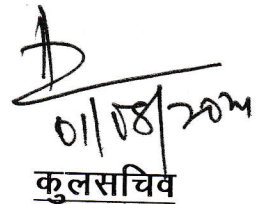 01/08/20
कुलसचिव